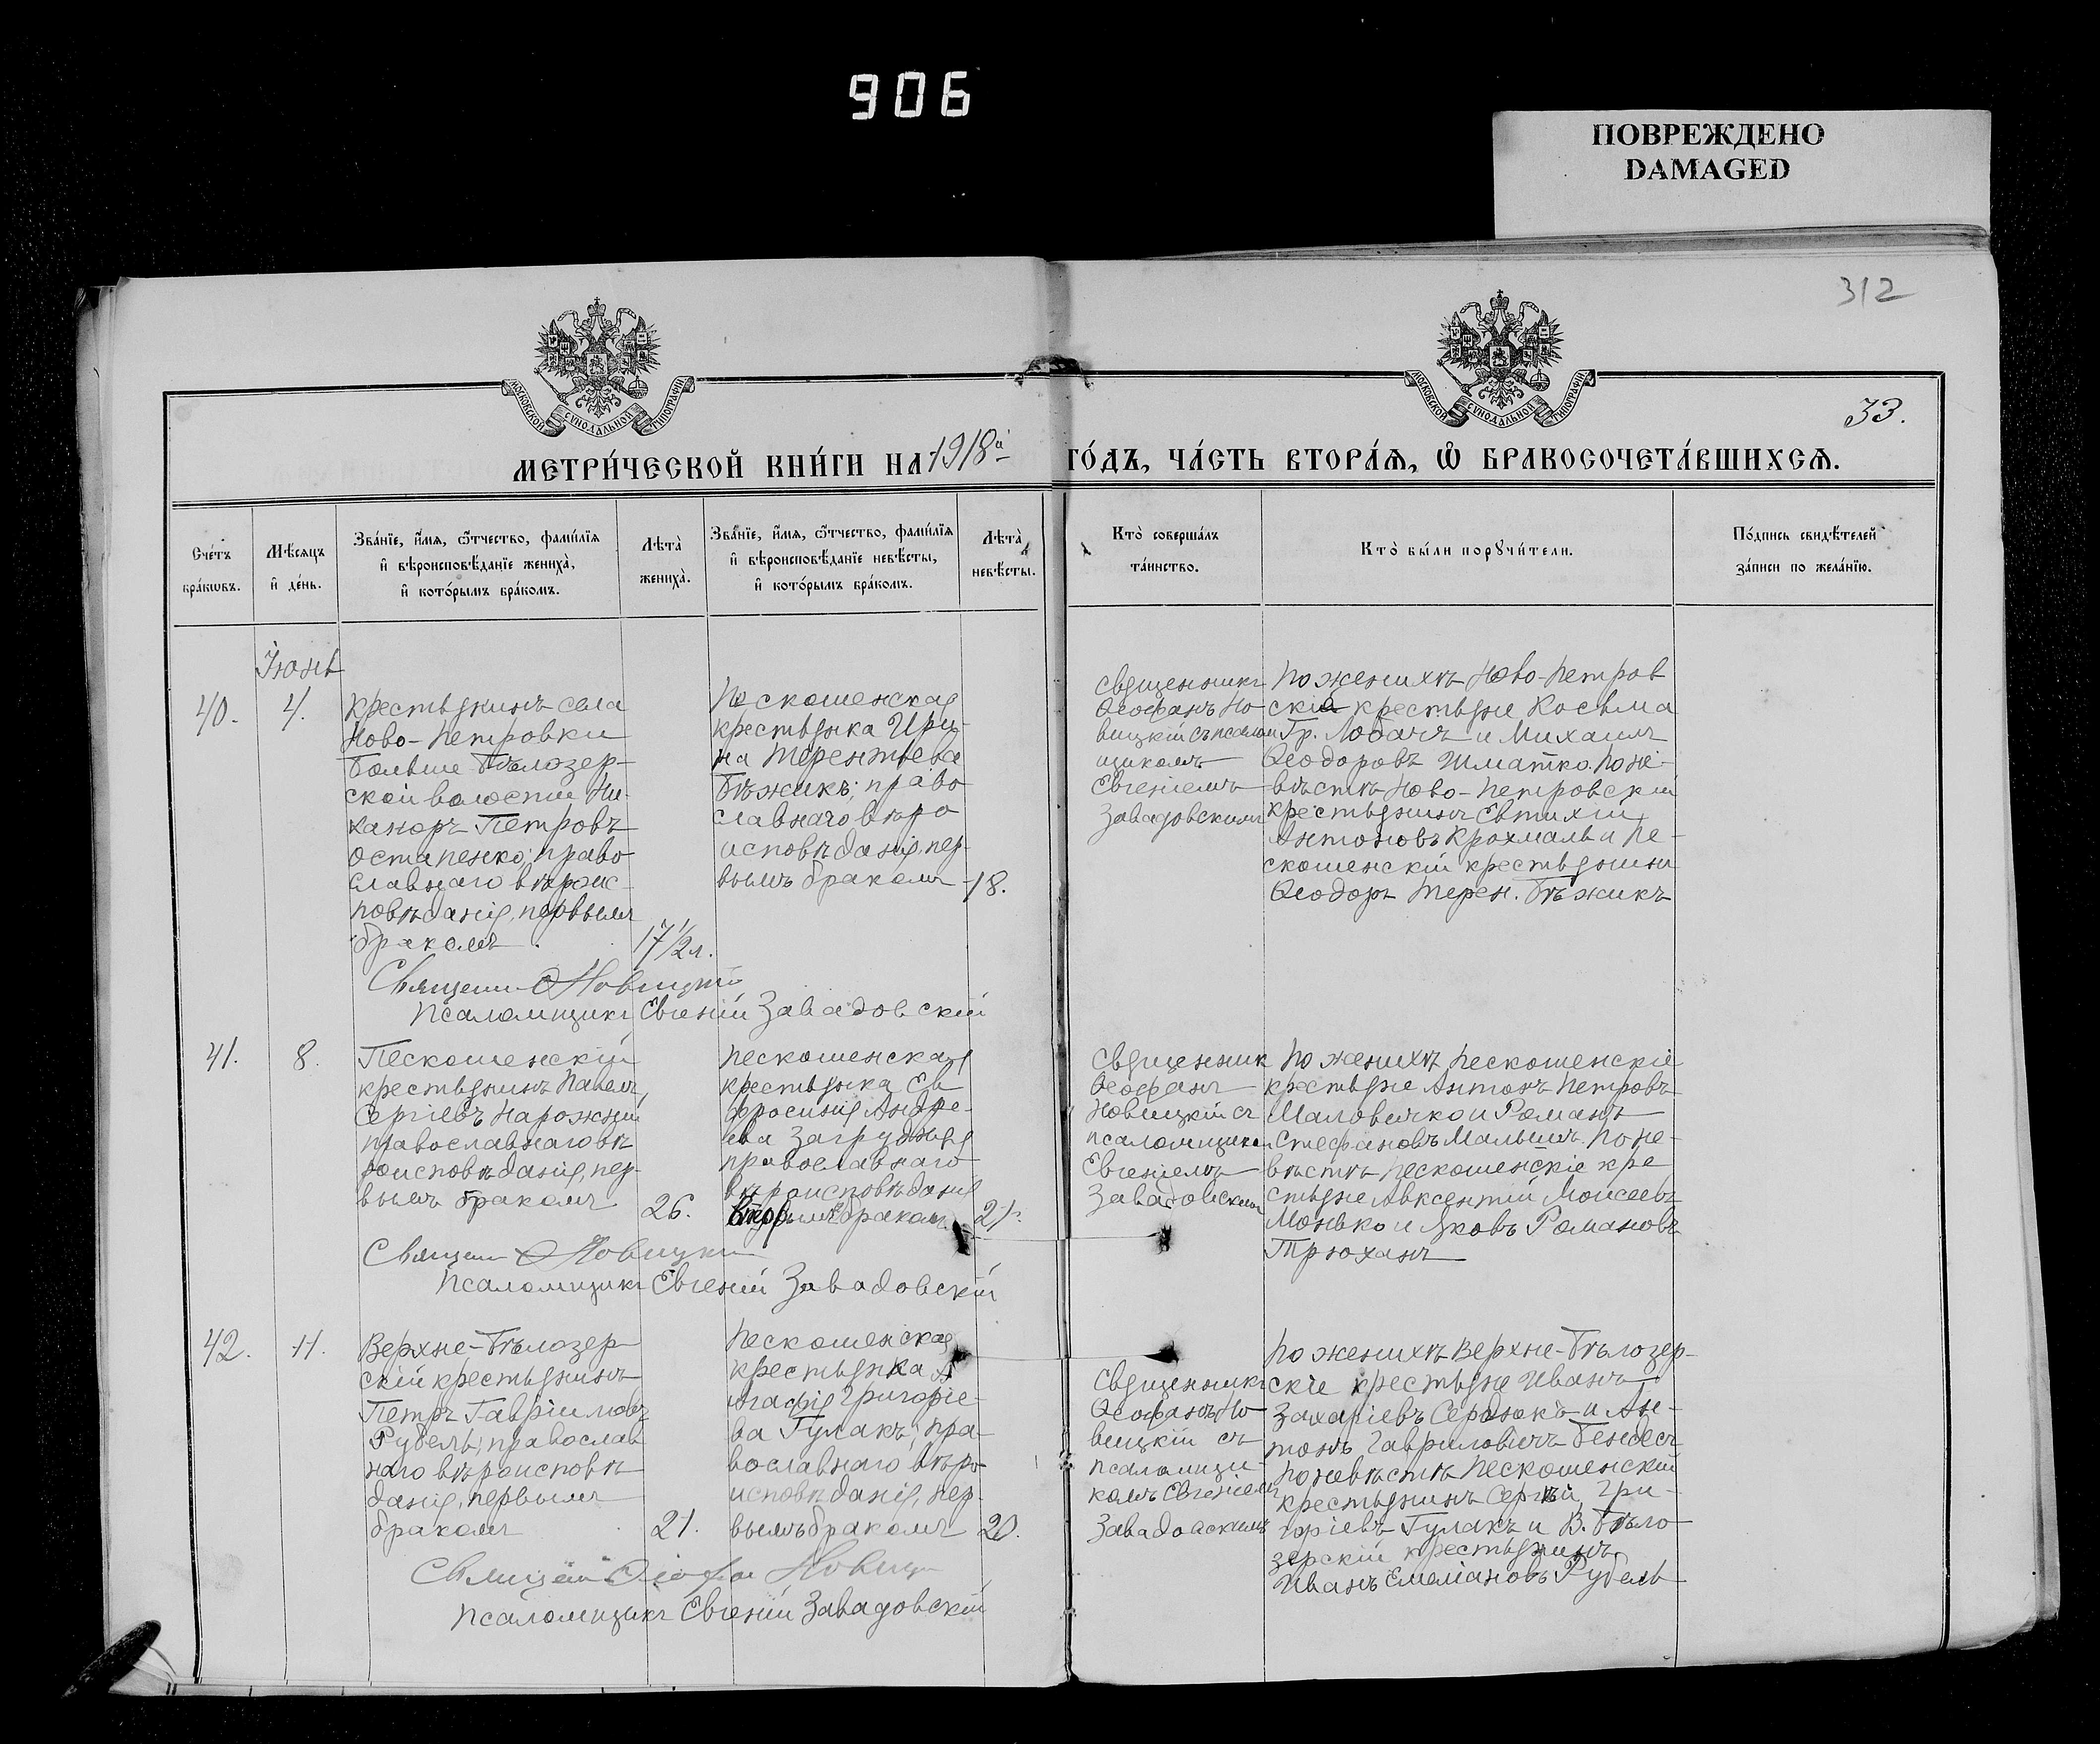 906
ПОВРЕЖДЕНО
DAMAGED
312
МОСКОВСКОЙ СѴНОДАЛЬНОЙ ТИПОГРАФІИ
МОСКОВСКОЙ СѴНОДАЛЬНОЙ ТИПОГРАФІИ
33.
МЕТРИ́ЧЕСКОЙ КНИ́ГИ НА 1918й ГО́ДЪ, ЧА́СТЬ ВТОРА́Я, Ѡ БРАКОСОЧЕТА́ВШИХСЯ.
Сче́тъ
бра́кѡвъ.
Мѣ́сяцъ
и҆ де́нь.
Зва́нїе, и҆́мя, ѻ҆́тчество, фами́лїя
и҆ вѣроисповѣ́данїе жениха̀,
и҆ кото́рымъ бра́комъ.
Лѣта̀
жениха̀.
Зва́нїе, и҆́мя, ѻ҆́тчество, фами́лїя
и҆ вѣроисповѣ́данїе невѣ́сты,
и҆ кото́рымъ бра́комъ.
Лѣта̀
невѣ́сты.
Кто̀ соверша́лъ
та́инство.
Кто̀ бы́ли порꙋчи́тели.
По́дпись свидѣ́телей
за́писи по жела́нїю.
Іюнь
40.
4.
Крестьянинъ села
Ново-Петровки
Больше-Бѣлозер-
ской волости Ни-
каноръ Петровъ
Остапенко; право
славнаго вѣроис-
повѣданія, первымъ
бракомъ.
17 1/2 л.
Пескошенская
крестьянка Ири-
на Терентьева
Бѣжикъ; право
славнаго вѣро
исповѣданія, пер-
вымъ бракомъ
18.
Священникъ
Ѳеофанъ Но-
вицкій съ псалом
щикомъ
Евгеніемъ
Завадовскимъ
По женихѣ Ново-Петров
скіе крестьяне Косьма
Гр. Лобачъ и Михаилъ
Ѳеодоровъ Шматко. По не-
вѣстѣ Ново-Петровскій
крестьянинъ Евтихій
Антоновъ Крохмаль и Пе-
скошенскій крестьянинъ
Ѳеодоръ Терен. Бѣжикъ
Священн. Ѳ Новицкій
Псаломщикъ Евгеній Завадовскій
41.
8.
Пескошенскій
крестьянинъ Павелъ
Сергіевъ Нарожный
православнаго вѣ
роисповѣданія, пер-
вымъ бракомъ
26.
Пескошенская
крестьянка Ев
фросинія Андре-
ева Загрудняя
православнаго
вѣроисповѣданія
бракомъ
21.
Священник
Ѳеофанъ
Новицкій съ
псаломщиком
Евгеніемъ
Завадовским
По женихѣ Пескошенскіе
крестьяне Антонъ Петровъ
Маловичко и Романъ
Стефановъ Малышъ. По не-
вѣстѣ Пескошенскіе кре
стьяне Авксентій Моисеевъ
Монько и Яковъ Романовъ
Трюханъ
Священ Ѳ Новицкій
Псаломщикъ Евгеній Завадовскій
42.
11.
Верхне-Бѣлозер
скій крестьянинъ
Петръ Гавріиловъ
Рубель; православ
наго вѣроисповѣ
данія, первымъ
бракомъ
21.
Пескошенская
крестьянка А
гафія Григоріе-
ва Гулакъ; пра-
вославнаго вѣро
исповѣданія, пер-
вымъ бракомъ
20.
Священникъ
Ѳеофанъ Но-
вицкій съ
псаломщи-
комъ Евгеніемъ
Завадовскимъ
По женихѣ Верхне-Бѣлозер-
скіе крестьяне Иванъ
Захаріевъ Сердюкъ и Ан-
тонъ Гавриловичъ
По невѣстѣ Пескошенскій
крестьянинъ Сергѣй Гри-
горіевъ Гулакъ и В. Бѣло
зерскій крестьянинъ
Иванъ Емеліановъ Рубель
Священ Ѳеофан Новиц
Псаломщикъ Евгеній Завадовскій